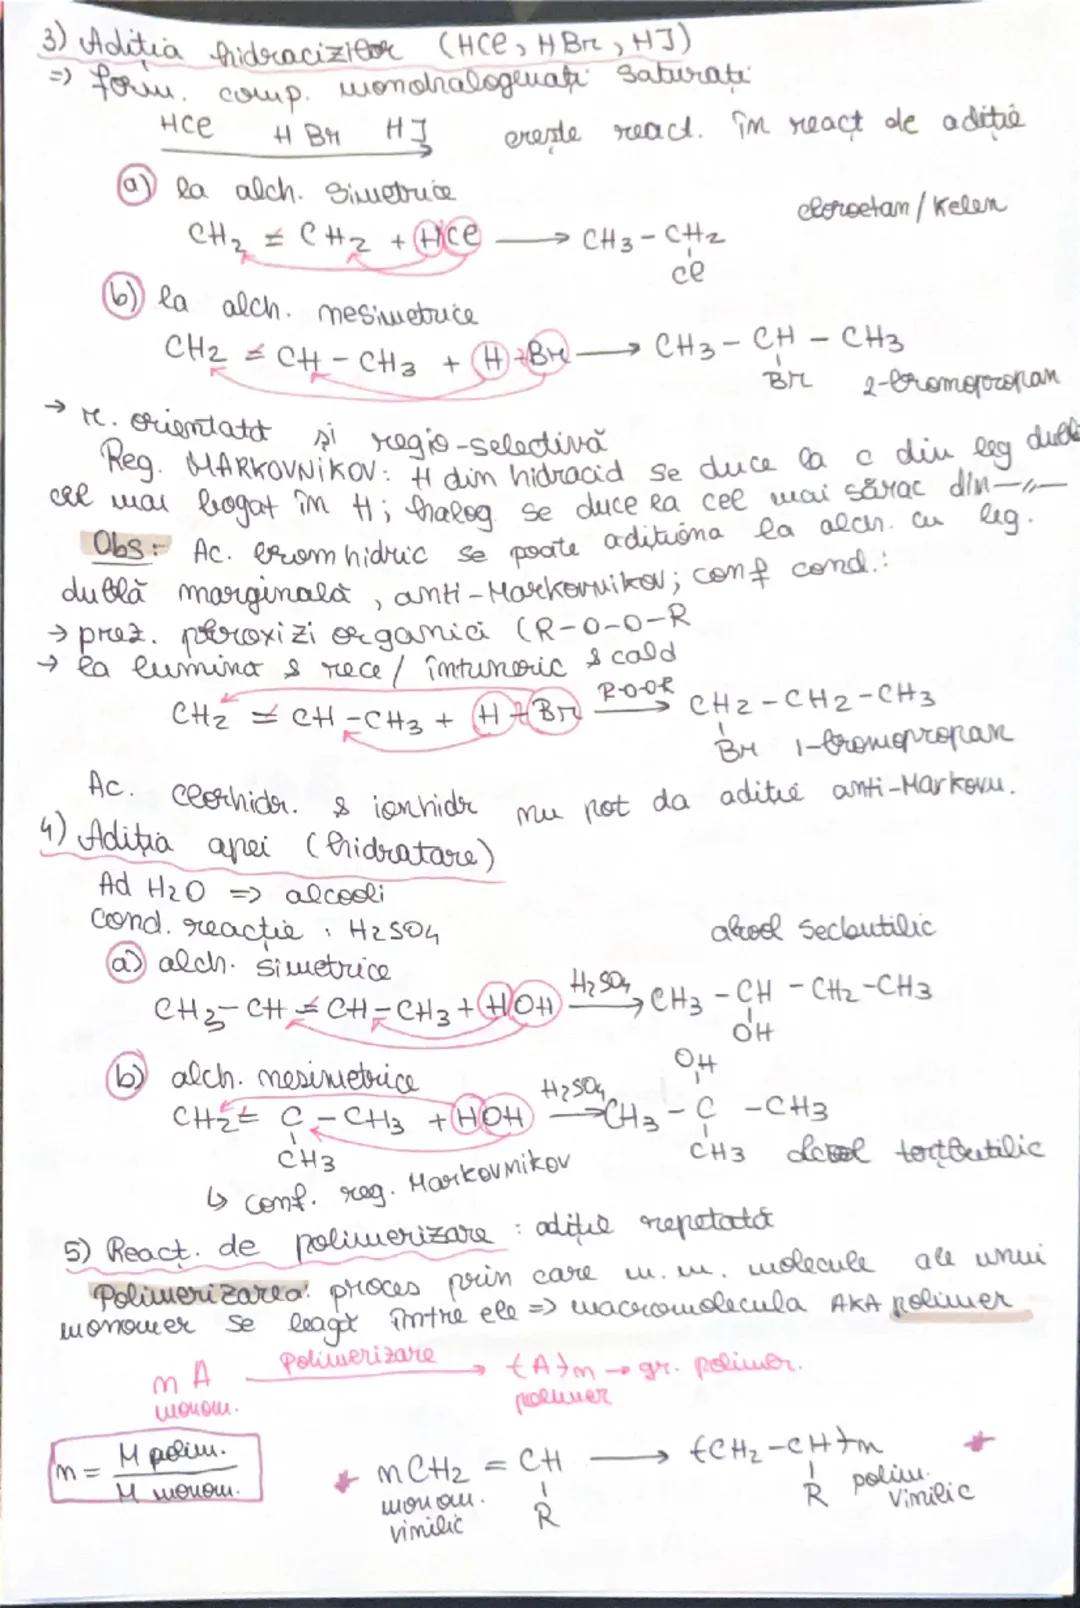 3) Adiția hidracizilor (HCl, HBr, HI)
=> form. comp. monohalogenați saturați
HCl HBr HI crește react. în reacț de adiție
a) la alch. simetrice
cloroetan / Kelen
CH2 = CH2 + HCl → CH3 - CH2
Cl
b) la alch. nesimetrice
CH2 = CH - CH3 + H-Br → CH3 - CH - CH3
Br 2-bromopropan
→ r. orientată și regio-selectivă
Reg. MARKOVNIKOV: H din hidracid se duce la C din leg dublă
cel mai bogat în H; halog se duce la cel mai sărac din —〃—
Obs: Ac. bromhidric se poate adiționa la alch. cu leg.
dublă marginală, anti-Markovnikov; conf cond.:
→ prez. peroxizi organici (R-O-O-R
→ la lumină & rece / întuneric & cald
CH2 = CH - CH3 + H-Br R-O-O-R → CH2 - CH2 - CH3
Br 1-bromopropan
Ac. clorhidr. & iodhidr nu pot da adiție anti-Markovn.
4) Adiția apei (hidratare)
Ad H2O => alcooli
Cond. reacție : H2SO4
alcool secbutilic
a) alch. simetrice
CH3 - CH = CH - CH3 + HOH H2SO4 → CH3 - CH - CH2 - CH3
OH
b) alch. nesimetrice
OH
CH2 = C - CH3 + HOH H2SO4 → CH3 - C - CH3
CH3 CH3 alcool terțbutilic
↳ conf. reg. Markovnikov
5) Reacț. de polimerizare : adiție repetată
Polimerizarea: proces prin care m. m. molecule ale unui
monomer se leagă între ele => macromolecula AKA polimer
n A Polimerizare → (A)n → gr. polimer.
monom. polimer
n = M polim. / M monom.
* nCH2 = CH → (CH2 - CH)n *
R R
monom. vinilic
polim. vinilic